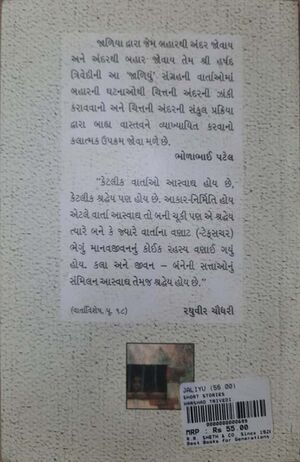 જાળિયા દ્વારા જેમ બહારથી અંદર જોવાય
અને અંદરથી બહાર જોવાય તેમ શ્રી હર્ષદ
ત્રિવેદીની આ 'જાળિયું' સંગ્રહની વાર્તાઓમાં
બહારની ઘટનાઓથી ચિત્તની અંદરની ઝાંકી
કરાવવાનો અને ચિત્તની અંદરની સંકુલ પ્રક્રિયા
દ્વારા બાહ્ય વાસ્તવને વ્યાખ્યાયિત કરવાનો
કલાત્મક ઉપક્રમ જોવા મળે છે.
ભોળાભાઈ પટેલ
"કેટલીક વાર્તાઓ આસ્વાદ્ય હોય છે,
કેટલીક શ્રદ્ધેય પણ હોય છે. આકાર-નિર્મિતિ હોય
એટલે વાર્તા આસ્વાદ્ય તો બની ચૂકી પણ એ શ્રદ્ધેય
ત્યારે બને કે જ્યારે વાર્તાના વણાટ (-ટેક્સચર)
ભેગું માનવજીવનનું કોઈક રહસ્ય વણાઈ ગયું
હોય. કલા અને જીવન – બંનેની સત્તાઓનું
સંમિલન આસ્વાદ્ય તેમજ શ્રદ્ધેય હોય છે."
(વાર્તાવિશેષ, પૃ. ૧૮) રઘુવીર ચૌધરી
JALIYU (55.00)
SHORT STORIES
HARSHAD TRIVEDI
MRP : Rs 55.00
R.R. SHETH & CO. Since 1926
Best Books for Generations